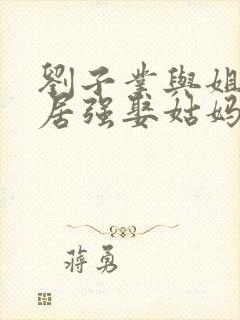 劉子業與姐
居强娶姑妈
蔣勇